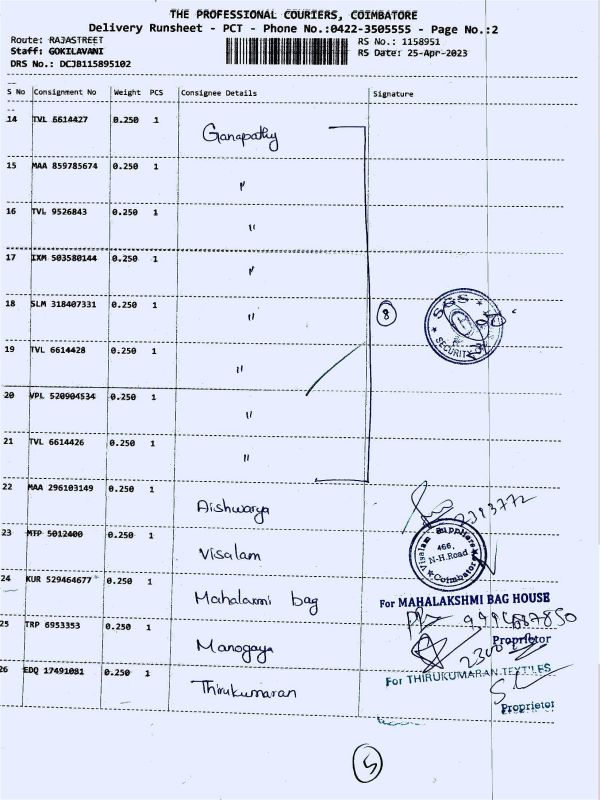 THE PROFESSIONAL COURIERS, COIMBATORE
Delivery Runsheet - PCT - Phone No.:0422-3505555 - Page No.:2
Route: RAJASTREET
RS No.: 1158951
Staff: GOKILAVANI
RS Date: 25-Apr-2023
DRS No.: DCJB115895102
S No Consignment No Weight PCS Consignee Details Signature
14 TVL 6614427 0.250 1 Ganapathy
15 MAA 859785674 0.250 1 〃
16 TVL 9526843 0.250 1 〃
17 IXM 503580144 0.250 1 〃
18 SLM 318407331 0.250 1 〃 8
SGS
SECURITY
19 TVL 6614428 0.250 1 〃
20 VPL 520904534 0.250 1 〃
21 TVL 6614426 0.250 1 〃
22 MAA 296103149 0.250 1 Aishwarya
23 MTP 5012400 0.250 1 Visalam
Visalam Suppliers
466,
N-H.Road
Coimbatore
24 KUR 529464677 0.250 1 Mahalaxmi bag
For MAHALAKSHMI BAG HOUSE
Proprietor
25 TRP 6953353 0.250 1 Manogaya
26 EDQ 17491081 0.250 1 Thirukumaran
For THIRUKUMARAN TEXTILES
Proprietor
5